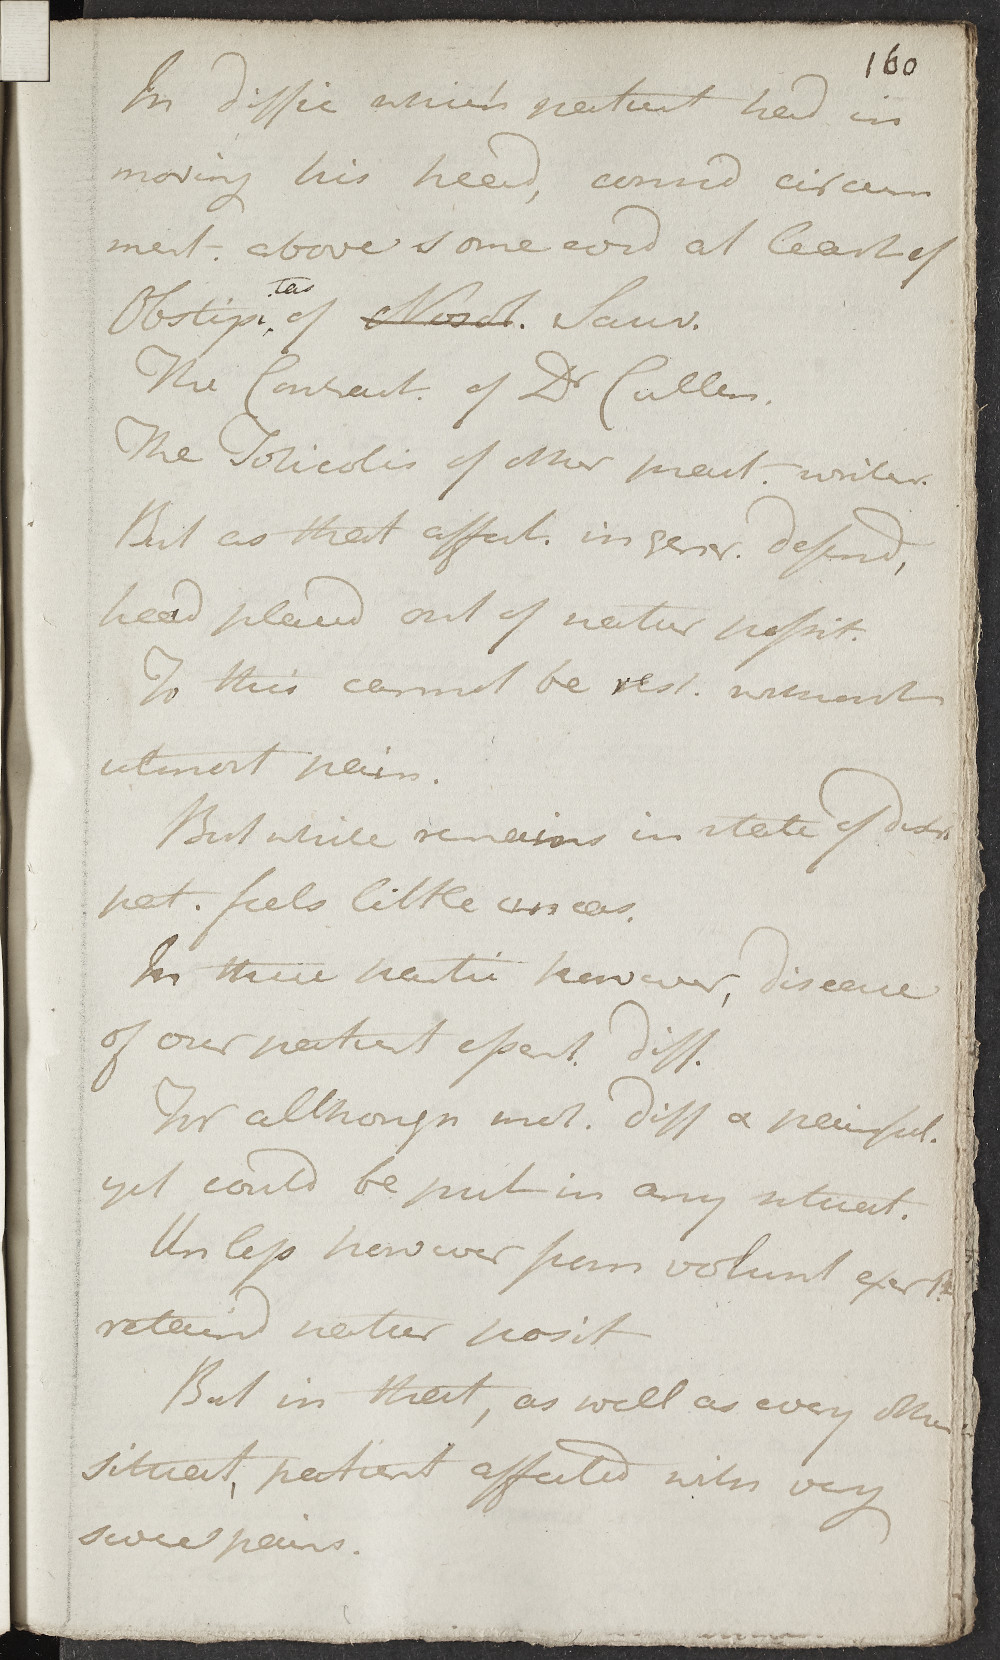 160
In diffic which patient had in
moving his head, connd circum
mert. above some word at least of
Obstipi,tas of Nosol. Sauv.
The Contract. of Dr Cullen.
The Torticolis of other pract. writer.
But as that affect. in gener. depend,
head placed out of natur posit.
To this cannot be rest. without
utmost pain.
But while remains in state of
pat. feels little uneas.
In these partic however, disease
of our patient essent. diff.
For although mot. diff & painful.
yet could be put in any situat.
Unless however from volunt exert
retaind natur posit
But in that, as well as every other
situat, patient affected with very
severe pains.